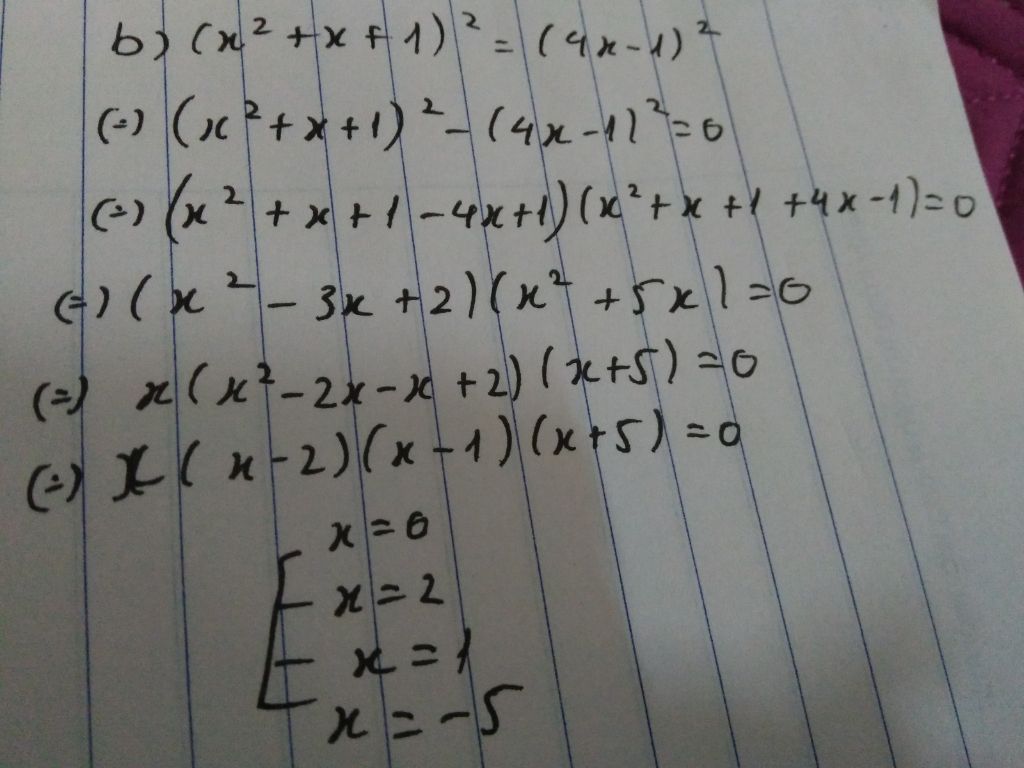 b) (x² + x + 1)² = (4x - 1)²
(=) (x² + x + 1)² - (4x - 1)² = 0
(=) (x² + x + 1 - 4x + 1) (x² + x + 1 + 4x - 1) = 0
(=) (x² - 3x + 2) (x² + 5x) = 0
(=) x (x² - 2x - x + 2) (x + 5) = 0
(=) x (x - 2) (x - 1) (x + 5) = 0
x = 0
x = 2
x = 1
x = -5